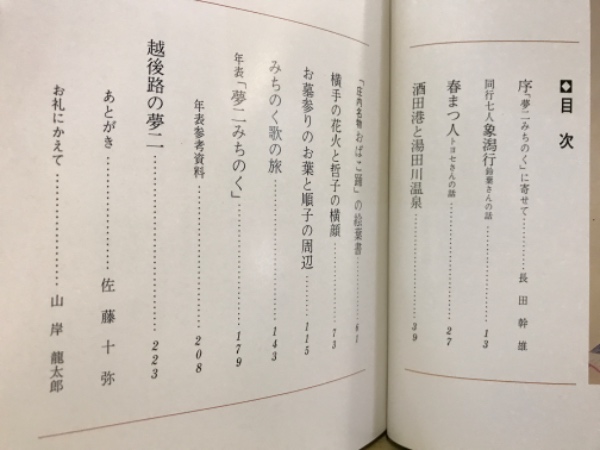 ◆目次
序「夢二みちのく」に寄せて…………長田幹雄
同行七人象潟行 鈴葉さんの話…………13
春まつ人 トヨセさんの話…………27
酒田港と湯田川温泉…………39
「庄内名物おばこ踊」の絵葉書…………61
横手の花火と哲子の横顔…………73
お墓参りのお葉と順子の周辺…………115
みちのく歌の旅…………143
年表「夢二みちのく」…………179
年表参考資料…………208
越後路の夢二…………223
あとがき…………佐藤十弥
お礼にかえて…………山岸龍太郎